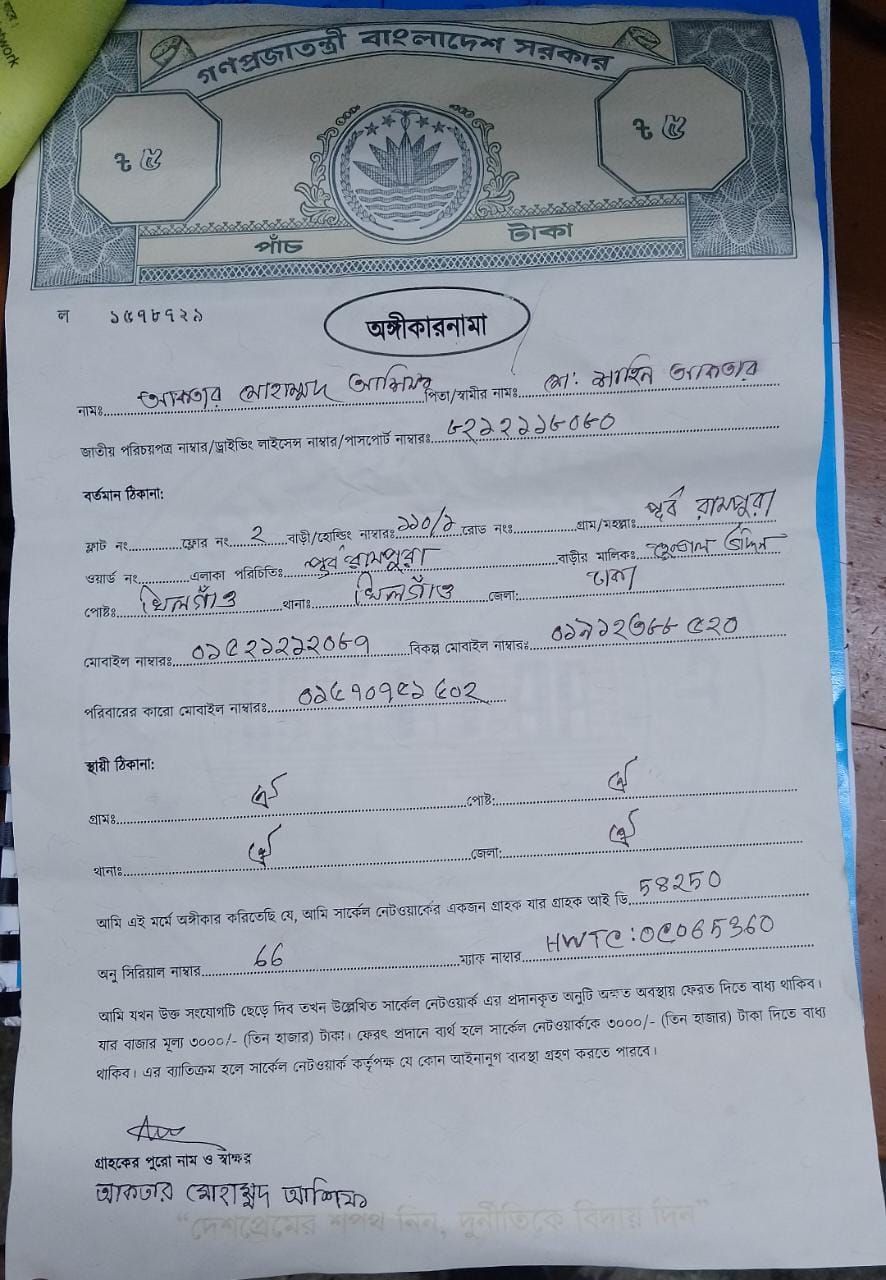 গণপ্রজাতন্ত্রী বাংলাদেশ সরকার
ট ৫
ট ৫
পাঁচ টাকা
ল ১৫৭৮৭২৯
অঙ্গীকারনামা
নামঃ আকতার মোহাম্মদ পিতা/স্বামীর নামঃ মো: শাহিন আকতার
জাতীয় পরিচয়পত্র নাম্বার/ড্রাইভিং লাইসেন্স নাম্বার/পাসপোর্ট নাম্বারঃ
বর্তমান ঠিকানা:
ফ্লাট নং ফ্লোর নং ২ বাড়ী/হোল্ডিং নাম্বারঃ ১১০/১ রোড নংঃ গ্রাম/মহল্লাঃ পূর্ব রামপুরা
ওয়ার্ড নং এলাকা পরিচিতিঃ পূর্ব রামপুরা বাড়ীর মালিকঃ উদ্দিন
পোষ্টঃ খিলগাঁও থানাঃ খিলগাঁও জেলা: ঢাকা
মোবাইল নাম্বারঃ ০১৫২১২১২০৬৭ বিকল্প মোবাইল নাম্বারঃ
পরিবারের কারো মোবাইল নাম্বারঃ
স্থায়ী ঠিকানা:
গ্রামঃ ঐ পোষ্ট: ঐ
থানাঃ ঐ জেলা: ঐ
আমি এই মর্মে অঙ্গীকার করিতেছি যে, আমি সার্কেল নেটওয়ার্কের একজন গ্রাহক যার গ্রাহক আই ডি 58250
অনু সিরিয়াল নাম্বার 66 ম্যাক নাম্বার HWTC:0C065360
আমি যখন উক্ত সংযোগটি ছেড়ে দিব তখন উল্লেখিত সার্কেল নেটওয়ার্ক এর প্রদানকৃত অনুটি অক্ষত অবস্থায় ফেরত দিতে বাধ্য থাকিব।
যার বাজার মূল্য ৩০০০/- (তিন হাজার) টাকা। ফেরৎ প্রদানে ব্যর্থ হলে সার্কেল নেটওয়ার্ককে ৩০০০/- (তিন হাজার) টাকা দিতে বাধ্য
থাকিব। এর ব্যতিক্রম হলে সার্কেল নেটওয়ার্ক কর্তৃপক্ষ যে কোন আইনানুগ ব্যবস্থা গ্রহণ করতে পারবে।
গ্রাহকের পুরো নাম ও স্বাক্ষর
আকতার মোহাম্মদ
"দেশপ্রেমের শপথ নিন, দুর্নীতিকে বিদায় দিন"